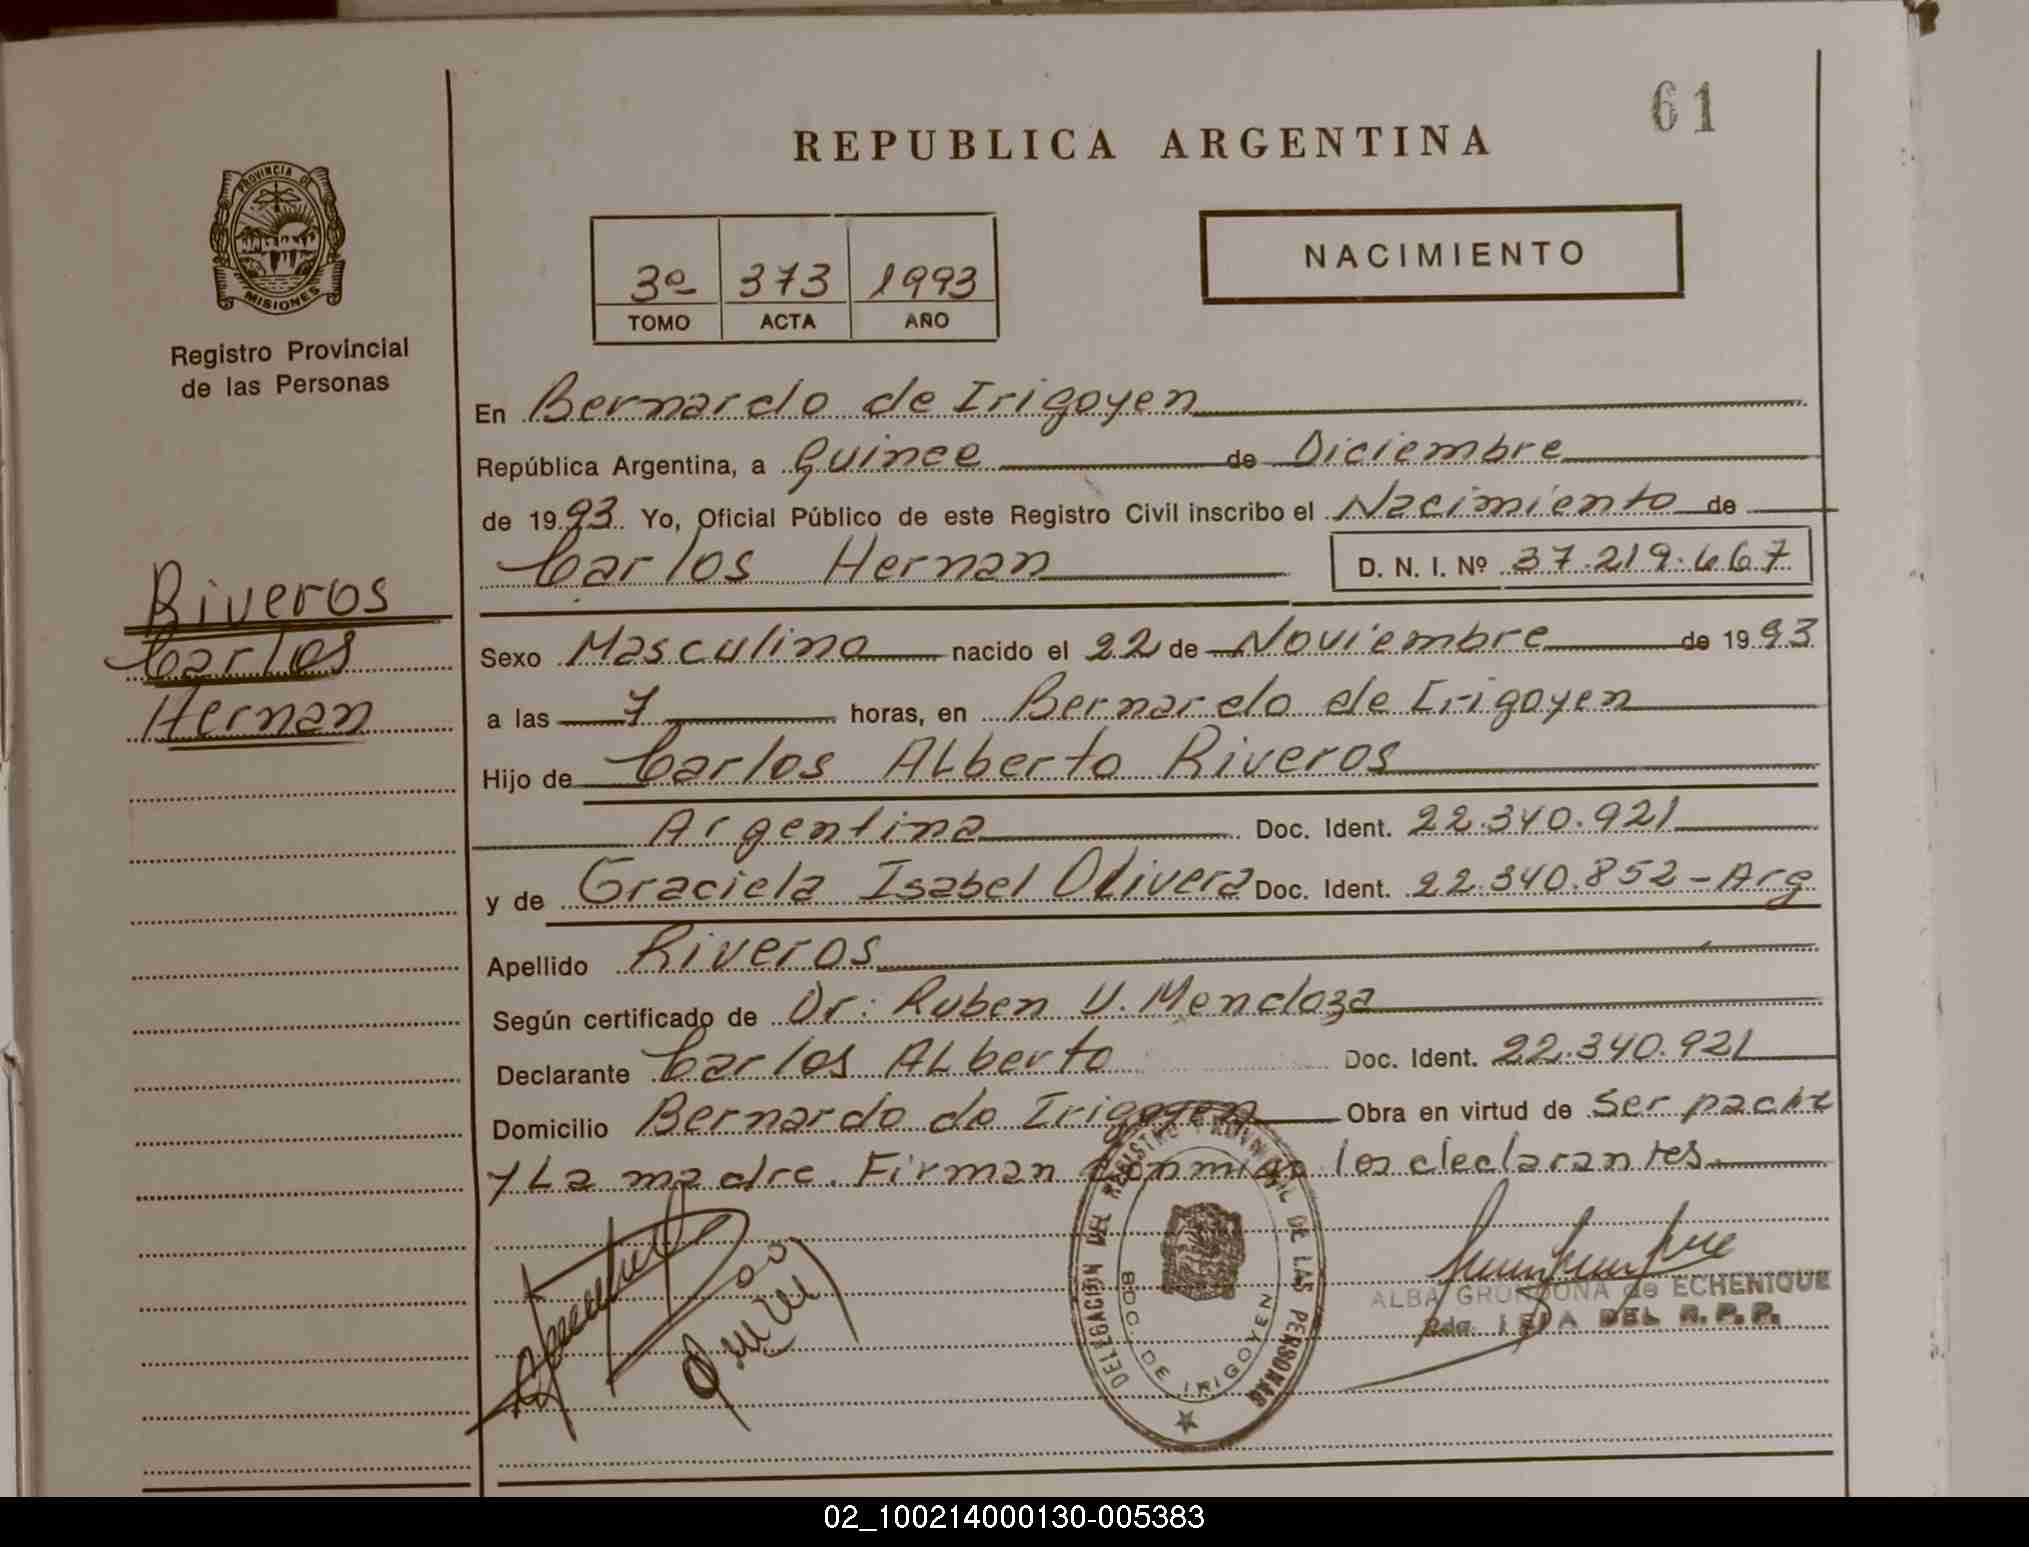 61
REPUBLICA ARGENTINA
PROVINCIA DE
MISIONES
Registro Provincial
de las Personas
3º 373 1993
TOMO ACTA AÑO
NACIMIENTO
En Bernardo de Irigoyen
República Argentina, a Quince de Diciembre
de 1993 Yo, Oficial Público de este Registro Civil inscribo el Nacimiento de
Carlos Hernan D. N. I. Nº 37.219.667
Riveros
Carlos
Hernan
Sexo Masculino nacido el 22 de Noviembre de 1993
a las 7 horas, en Bernardo de Irigoyen
Hijo de Carlos Alberto Riveros
Argentina Doc. Ident. 22.340.921
y de Graciela Isabel Olivera Doc. Ident. 22.340.852-Arg
Apellido Riveros
Según certificado de Dr: Ruben U. Mendoza
Declarante Carlos Alberto Doc. Ident. 22.340.921
Domicilio Bernardo de Irigoyen Obra en virtud de Ser padre
y La madre. Firman conmigo los declarantes
DELEGACIÓN DEL REGISTRO PROVINCIAL DE LAS PERSONAS
BDO. DE IRIGOYEN
ALBA GRONDONA de ECHENIQUE
DEL R.P.P.
02_100214000130-005383